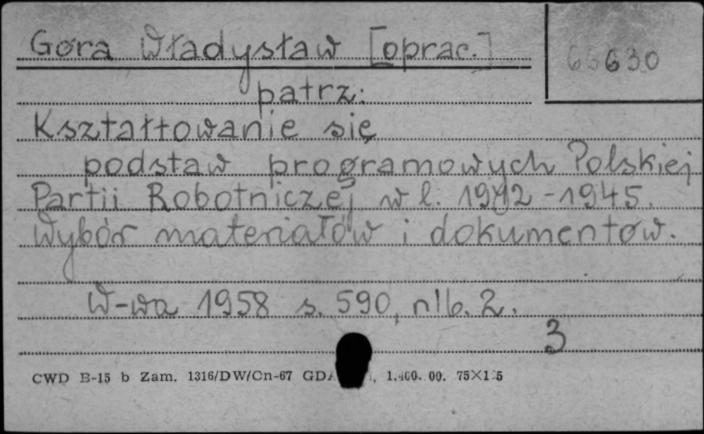 Góra Władysław [oprac.]
63630
patrz:
Kształtowanie się
podstaw programowych Polskiej
Partii Robotniczej w l. 1942-1945.
Wybór materiałów i dokumentów.
W-wa 1958 s. 590, nlb. 2.
3
CWD B-15 b Zam. 1316/DW/Cn-67 75X125